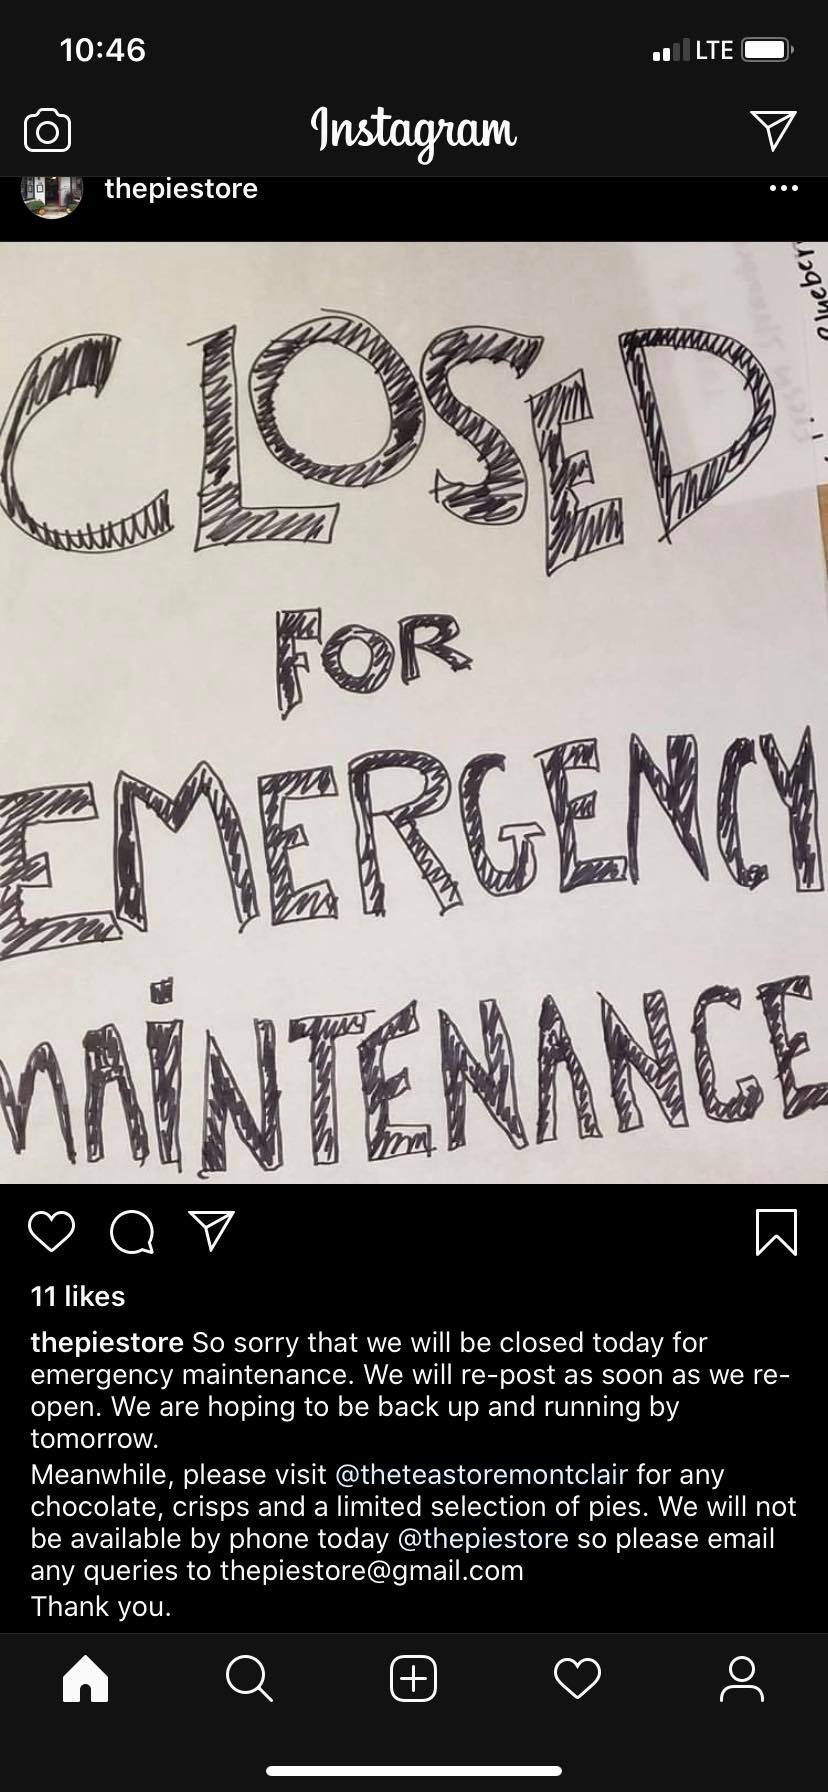 10:46
LTE
Instagram
thepiestore
CLOSED
FOR
EMERGENCY
MAiNTENANCE
11 likes
thepiestore So sorry that we will be closed today for
emergency maintenance. We will re-post as soon as we re-
open. We are hoping to be back up and running by
tomorrow.
Meanwhile, please visit @theteastoremontclair for any
chocolate, crisps and a limited selection of pies. We will not
be available by phone today @thepiestore so please email
any queries to thepiestore@gmail.com
Thank you.